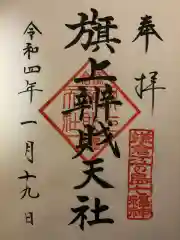 奉拝
旗上辨財天社
令和四年一月十九日